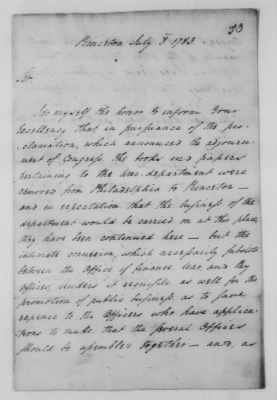 53
Princeton July 3d 1783
Sir
I do myself the honor to inform Your
Excellency that in pursuance of the pro-
clamation, which announced the adjourn-
ment of Congress, the books and papers
pertaining to the war department were
removed from Philadelphia to Princeton —
and in expectation that the business of the
department would be carried on at this place,
they have been continued here — but the
intimate connexion, which necessarily subsists
between the Office of finance, war and
Offices, renders it requisite as well for the
promotion of public business as to save
expence to the Officers who have applica-
tions to make that the several Offices
should be assembled together — and, as